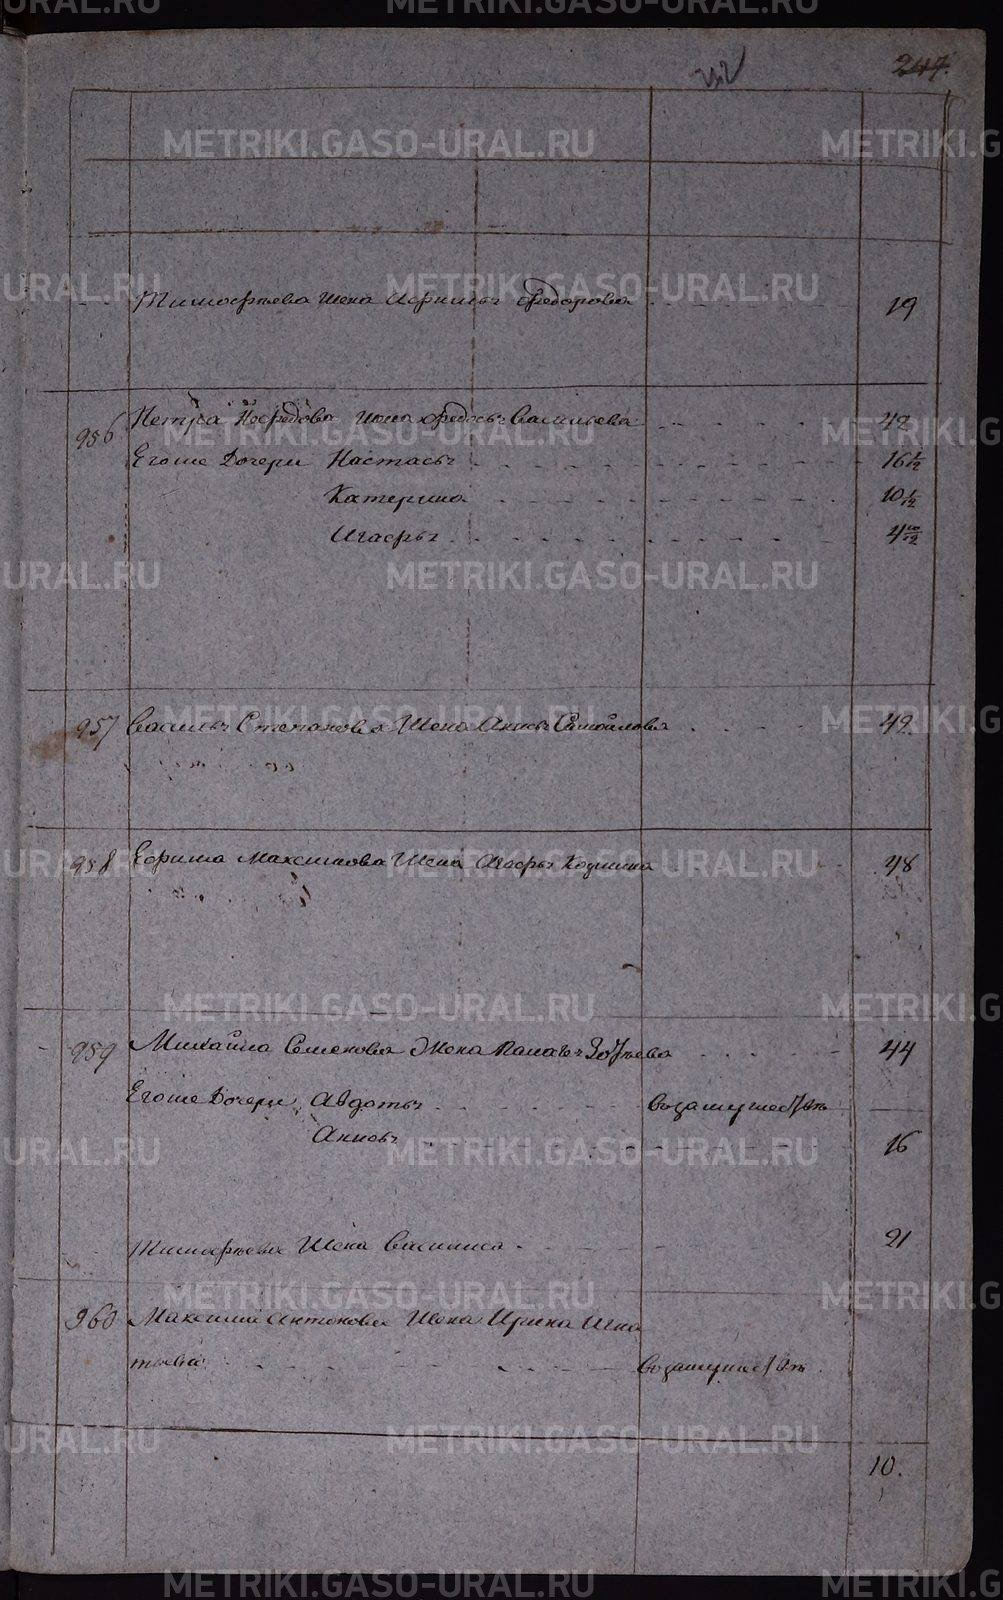 247.
Тимофѣева жена Афимья Федорова 19
956 Петра Нефедова жена Федосья Васильева 42
Егоже Дочери Настасья 16 1/12
Катерина 10 1/12
Агафья 4 10/12
957 Василья Степанова Жена Анисья Самойлова 49
958 Ефима Максимова Жена Агафья Козмина 48
959 Михайла Семенова Жена Палагея 44
Егоже Дочери Авдотья взамужествѣ
Анисья 16
Тимофѣева Жена Василиса 21
960 Максима Антонова Жена Ирина Игна
тьева взамужествѣ
10.
METRIKI.GASO-URAL.RU